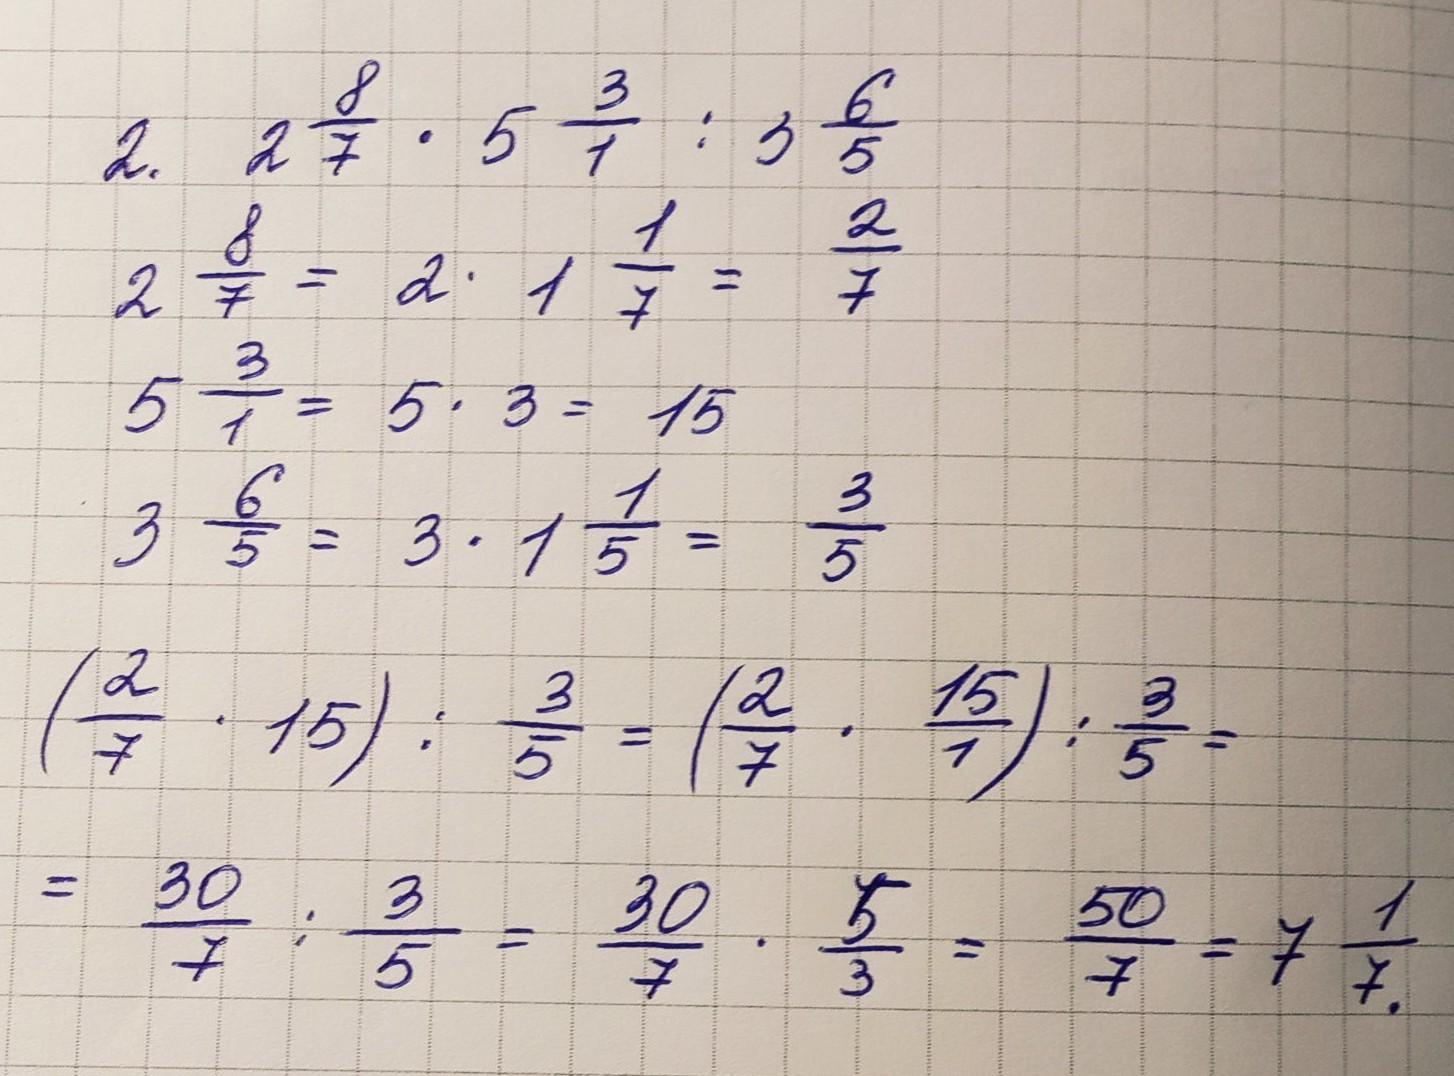 2. 2 8/7 · 5 3/1 : 3 6/5
2 8/7 = 2 · 1 1/7 = 2/7
5 3/1 = 5 · 3 = 15
3 6/5 = 3 · 1 1/5 = 3/5
(2/7 · 15) : 3/5 = (2/7 · 15/1) : 3/5 =
= 30/7 : 3/5 = 30/7 · 5/3 = 50/7 = 7 1/7.